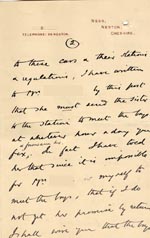 TELEPHONE: NESSTON.
NESS,
NESTON,
CHESHIRE.
(2)
to three cars a their stations
a regulations, I have written
to Mrs by this post
that she must send the sister
to the station to meet the boys
at whatever hour a day you
fix; In fact I have told
her that since it is impossible
for Mrs or myself to
meet the boys, that if I do
not get her promise by return
I shall wire you that the boys